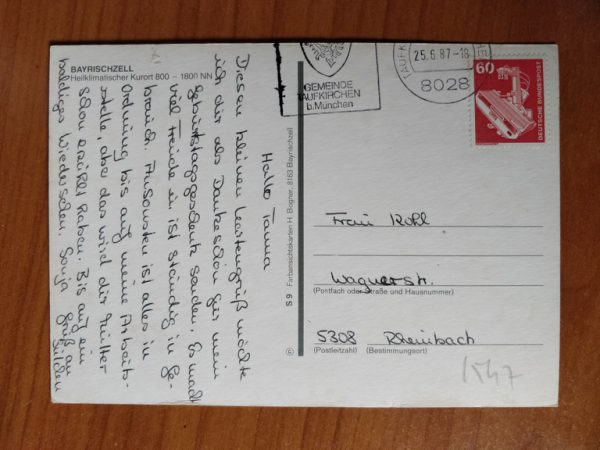 BAYRISCHZELL
Heilklimatischer Kurort 800 – 1800 NN
Hallo Tanna
Diesen kleinen Kartengruß möchte
ich dir als Dankeschön für mein
Geburtstagsgeschenk senden. Es macht
viel Freude ein ist ständig in Ge-
brauch. Ansonsten ist alles in
Ordnung bis auf meine Arbeits-
stelle, aber das wird dir Mutter
schon erzählt haben. Bis auf ein
baldiges Wiedersehen. Sonja Gruß an
© S 9 Farbansichtskarten H. Bogner, 8163 Bayrischzell
GEMEINDE
TAUFKIRCHEN
b.München
TAUFK
25.6.87-18
8028
60
DEUTSCHE BUNDESPOST
Frau Kohl
Wagnerstr.
(Postfach oder Straße und Hausnummer)
5308 Rheinbach
(Postleitzahl) (Bestimmungsort)